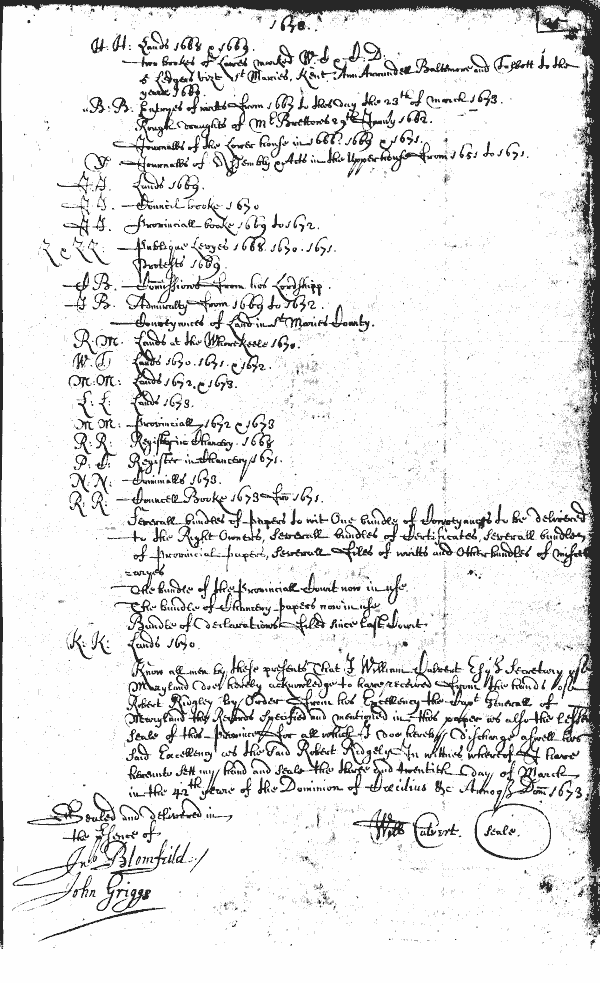 1673.
H. H: Lands 1668 & 1669.
two bookes of Lawes marked W. S. & D.
5 Ledgers vizt. St Maries, Kent, Ann Arrundell Baltemore and Talbott to the
yeare 1669.
B: B: Entryes of writts from 1669 to this day the 23th of march 1673.
Rough draughts of Mr. Brettons 29th 1662.
Journalls of the Lower house in 1666. 1669 & 1671.
Journalls of Assembly & Acts in the Upper house from 1651 to 1671.
J J. Lands 1669.
J J. Councill booke 1670
J J. Provinciall booke 1669 to 1672.
Z & ZZ: Publique Levyes 1668. 1670. 1671.
Protests 1669
J B. Comissions from his Lordshipp.
J B. Admiralty from 1669 to 1672.
Conveyances of Land in St Maries County.
R: M: Lands at the Whorekeele 1670.
W. T. Lands 1670. 1671. & 1672.
M: M: Lands 1672. & 1673.
L: L: Lands 1673.
M M: Provinciall 1672 & 1673
R: R: Register in Chancery. 1668
P. C: Register in Chancery 1671.
N. N: Criminalls 1673.
R: R Councell Booke 1673 from 1671.
Severall bundles of papers to wit One bundle of Conveyances to be delivered
to the Right Owners, severall bundles of Certificates, severall bundles
of Provincial papers, severall files of writts and Other bundles of
The bundle of the Provinciall Court now in use
The bundle of Chancery papers now in use
Bundle of declarations filed since last Court
K: K: Lands 1670.
Know all men by these presents that I William Calvert Esqr Secretary of
Maryland doe hereby acknowledge to have received from the hands of
Robert Ridgely By Order from his Excellency the Capt Generall of
Maryland the Records specified and mentioned in this paper as also the Lesser
Seale of this Province for all which I doe hereby discharge aswell his
said Excellency as the said Robert Ridgely In witnes whereof I have
hereunto sett my hand and seale the three and twentith day of March
in the 42th yeare of the Dominion of Cæcilius &c Annoq Dom 1673.
Sealed and delivered in
the psence of
Will Calvert. Seale.
Jno Blomfeild
John Griggs